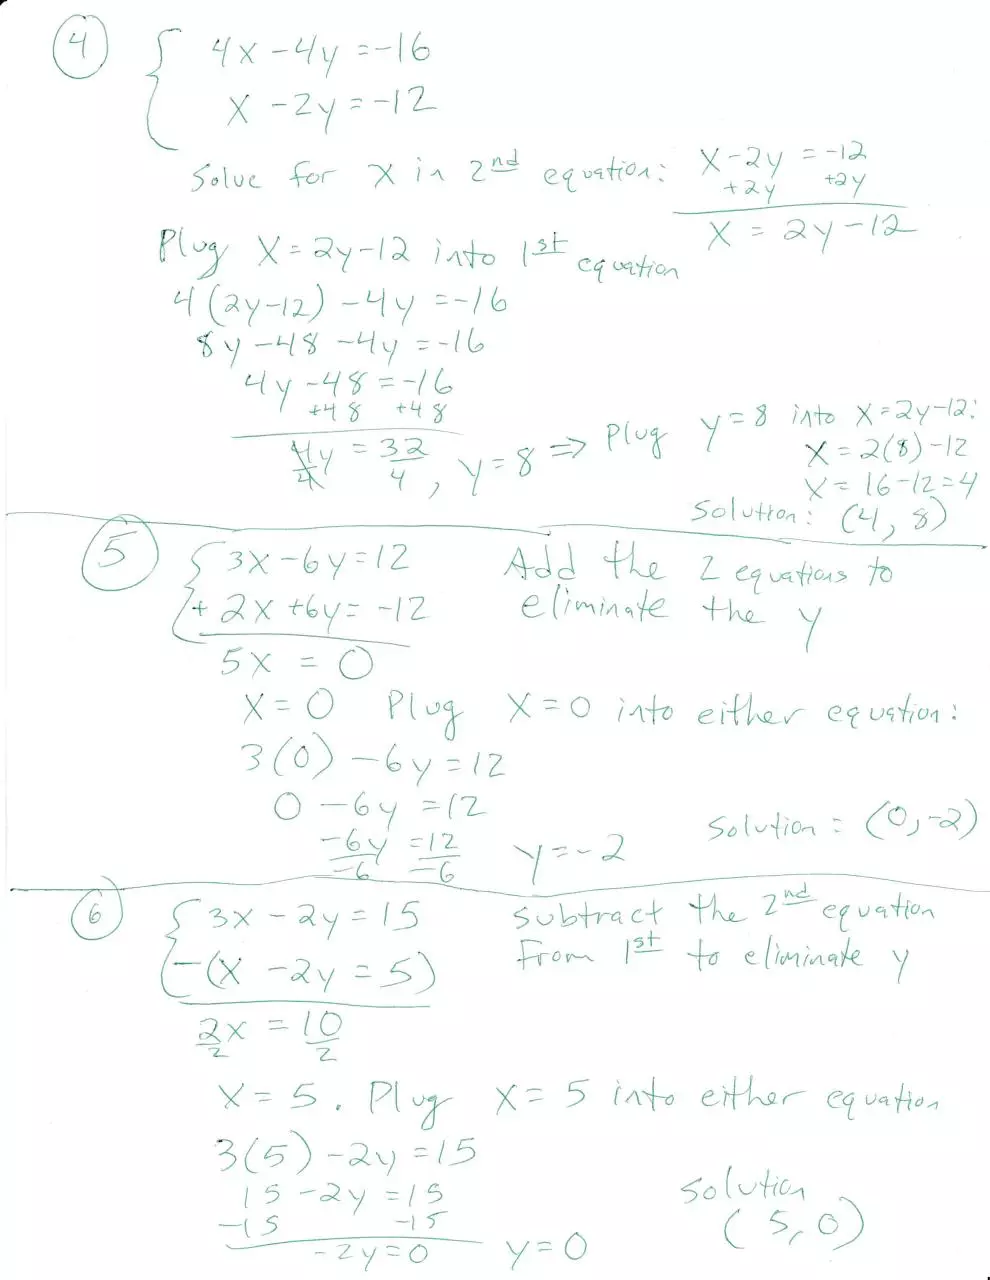 4
4x - 4y = -16
x - 2y = -12
Solve for x in 2nd equation: x - 2y = -12
+2y +2y
x = 2y - 12
Plug x = 2y - 12 into 1st equation
4(2y-12) - 4y = -16
8y - 48 - 4y = -16
4y - 48 = -16
+48 +48
4y/4 = 32/4, y = 8 => Plug y = 8 into x = 2y - 12:
x = 2(8) - 12
x = 16 - 12 = 4
Solution: (4, 8)
5
3x - 6y = 12 Add the 2 equations to
+ 2x + 6y = -12 eliminate the y
5x = 0
x = 0 Plug x = 0 into either equation:
3(0) - 6y = 12
0 - 6y = 12
-6y/-6 = 12/-6 y = -2 Solution = (0, -2)
6
3x - 2y = 15 Subtract the 2nd equation
-(x - 2y = 5) From 1st to eliminate y
2x/2 = 10/2
x = 5. Plug x = 5 into either equation
3(5) - 2y = 15
15 - 2y = 15
-15 -15
-2y = 0 y = 0
Solution
(5, 0)